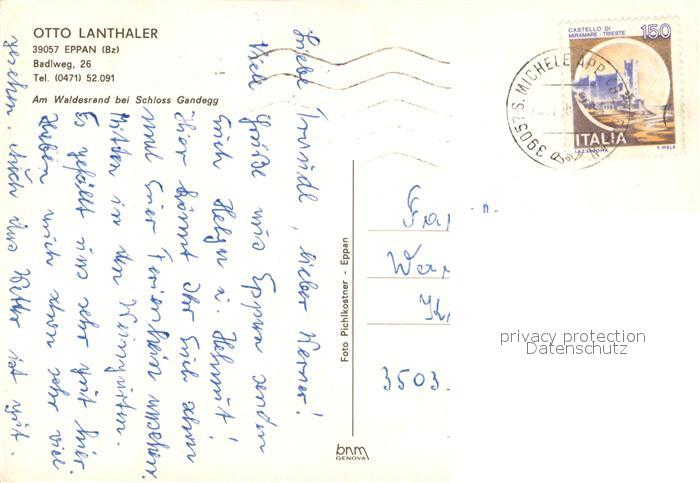 OTTO LANTHALER
39057 EPPAN (Bz)
Badlweg, 26
Tel. (0471) 52.091
Am Waldesrand bei Schloss Gandegg
Liebe Trudl, lieber Werner!
Viele Grüße aus Eppan senden
Euch Helga u. Helmut!
Hier könnt Ihr Euch schon
mal Eier Ferienheim ansehen.
Mitten in den Weingärten.
Es gefällt uns sehr gut hier.
Haben auch schon sehr viel
gesehen. Auch das Wetter ist gut.
Foto Pichlkostner - Eppan
bnm
GENOVA
CASTELLO DI
MIRAMARE - TRIESTE
150
ITALIA
39057 S. MICHELE APP.
Fa
n.
We
3503
privacy protection
Datenschutz